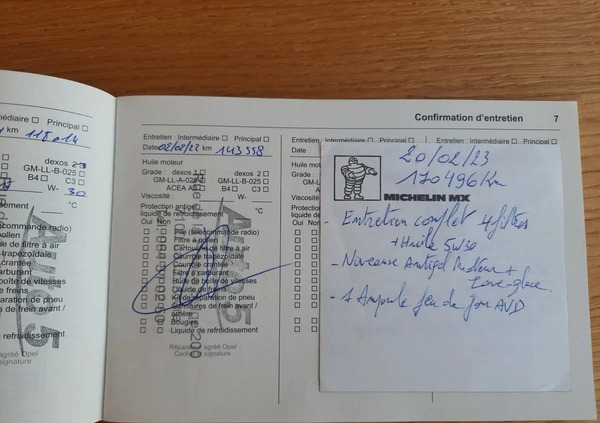 Confirmation d'entretien 7
médiaire ☐ Principal ☐
km 118014
dexos 2
GM-LL-B-025 ☐
B4 ☐ C3 ☐
W- 30
°C
ssement
commande radio)
ollen
e filtre à air
rapézoïdale
crantée
arburant
e vitesses
de freins
aration de pneu
freins avant /
e refroidissement
Auto 5
Entretien : Intermédiaire ☐ Principal ☐
Date 02/02/22 km 143558
Huile moteur
Grade : dexos 1 ☐ dexos 2 ☐
GM-LL-A-025 ☐ GM-LL-B-025 ☐
B4 ☐ C3 ☐
Viscosité : W-
°C
Protection antigel
liquide de refroidissement
Oui Non
(télécommande radio)
Filtre à pollen
Cartouche de filtre à air
Courroie trapézoïdale
Courroie crantée
Filtre à carburant
Huile de boîte de vitesses
Liquide de freins
Kit de réparation de pneu
Garnitures de frein avant /
arrière
Bougies
Liquide de refroidissement
Réparateur agréé Opel
Cachet, signature
Auto 5
Entretien
Date
Huile moteur
Grade :
Viscosité
Protection
liquide de
Oui Non
20/02/23
170496Km
MICHELIN MX
- Entretien complet 4 filtres
+ Huile 5W30
- Niveaux Antigel Moteur +
Lave-glace
- 1 Ampoule feu de jour AVD